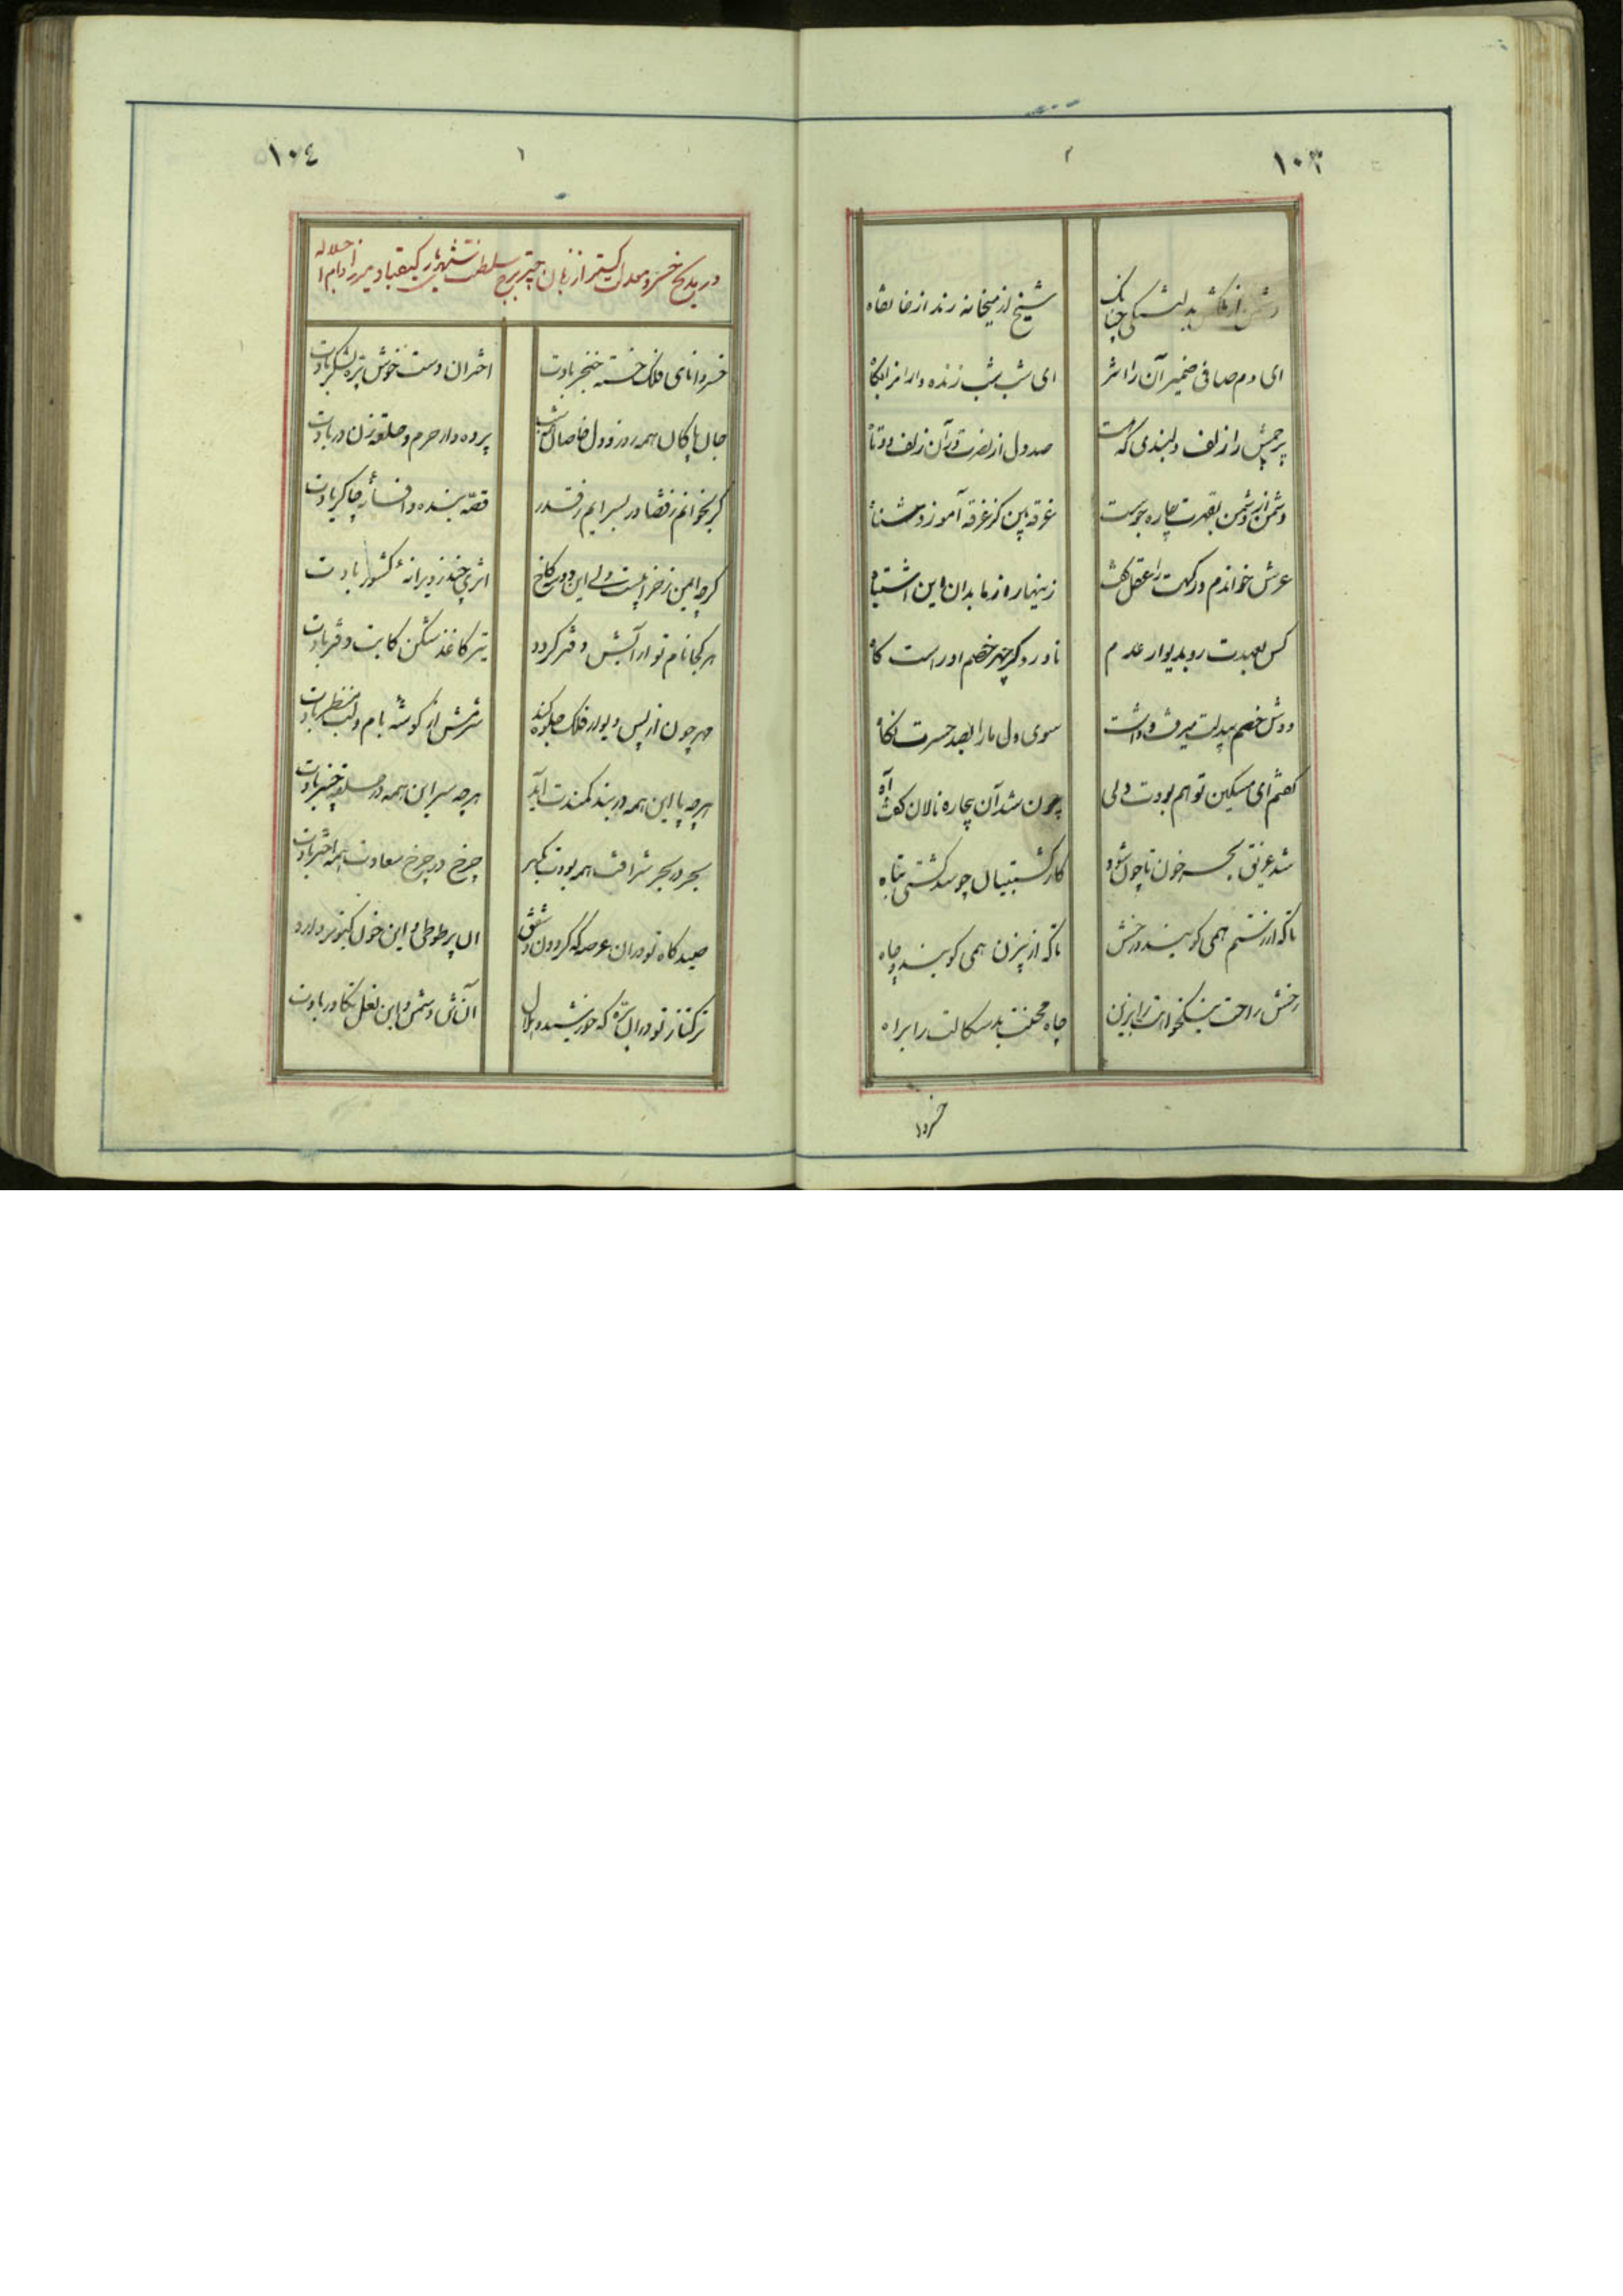 ۱۰۳
دشمن از بدلتنگی چنانک
شیخ از میخانه رند از خانقاه
ای دم صافی ضمیر آن را اثر
ای شب شب زنده دارا
پرچمش را زلف دلبندی که هست
صد دل از نصرت در آن زلف دوتاه
دشمن از دشمن بقهرت چاره جوست
غرقه بین کز غرقه آموزد شناه
عرش خواندم درگهت را عقل گفت
زینهار از ما بدان این اشتباه
کس بعهدت رو بدیوار عدم
ناورد گر چهر خصم اوراست کاه
دوش خصم بیدلت میرفت و داشت
سوی دل ما را بصد حسرت نگاه
گفتم ای مسکین تو هم بودت دلی
چون شد آن بیچاره نالان گفت آه
شد غریق بحر خون تا چون شود
کار کشتیبان چو شد کشتی تباه
تا که از رستم همی گویند و رخش
تا که از بیژن همی گویند و چاه
رخش راحت نیکخواهت را بزین
چاه محنت بدسگالت را براه
خسروا
۱۰٤
در مدیح خسرو معدلت گستر از زبان چتر برج سلطنت شهریار کیقباد میرزا دام اجلاله
خسروا نای فلک خسته خنجر بادت
اختران دست خوش تیره لشکر بادت
جان پاکان همه روز و دل خاصان همه شب
پرده دار حرم و حلقه زن در بادت
گر بخوانم ز قضا در بسرایم ز قدر
قصه بنده و افسانه چاکر بادت
گرچه ایمن ز خرابیست ولی این دو سه کاخ
اثری چند ز ویرانه کشور بادت
هر کجا نام تو آرایش دفتر گردد
تیر کاغذ شکن کاتب دفتر بادت
مهر چون از پس دیوار فلک جلوه کند
شرمش از گوشه بام و لب منظر بادت
هرچه پا این همه در بند کمندت آید
هرچه سر این همه در حلقه چنبر بادت
بحر در بحر شرافت همه بودت گهر
چرخ در چرخ سعادت همه اختر بادت
صیدگاه تو در آن عرصه که گردون و شفق
آن پر طوطی و این خون کبوتر دارد
ترکتاز تو در آن که خورشید و هلال
آن و این نعل تکاور بادت